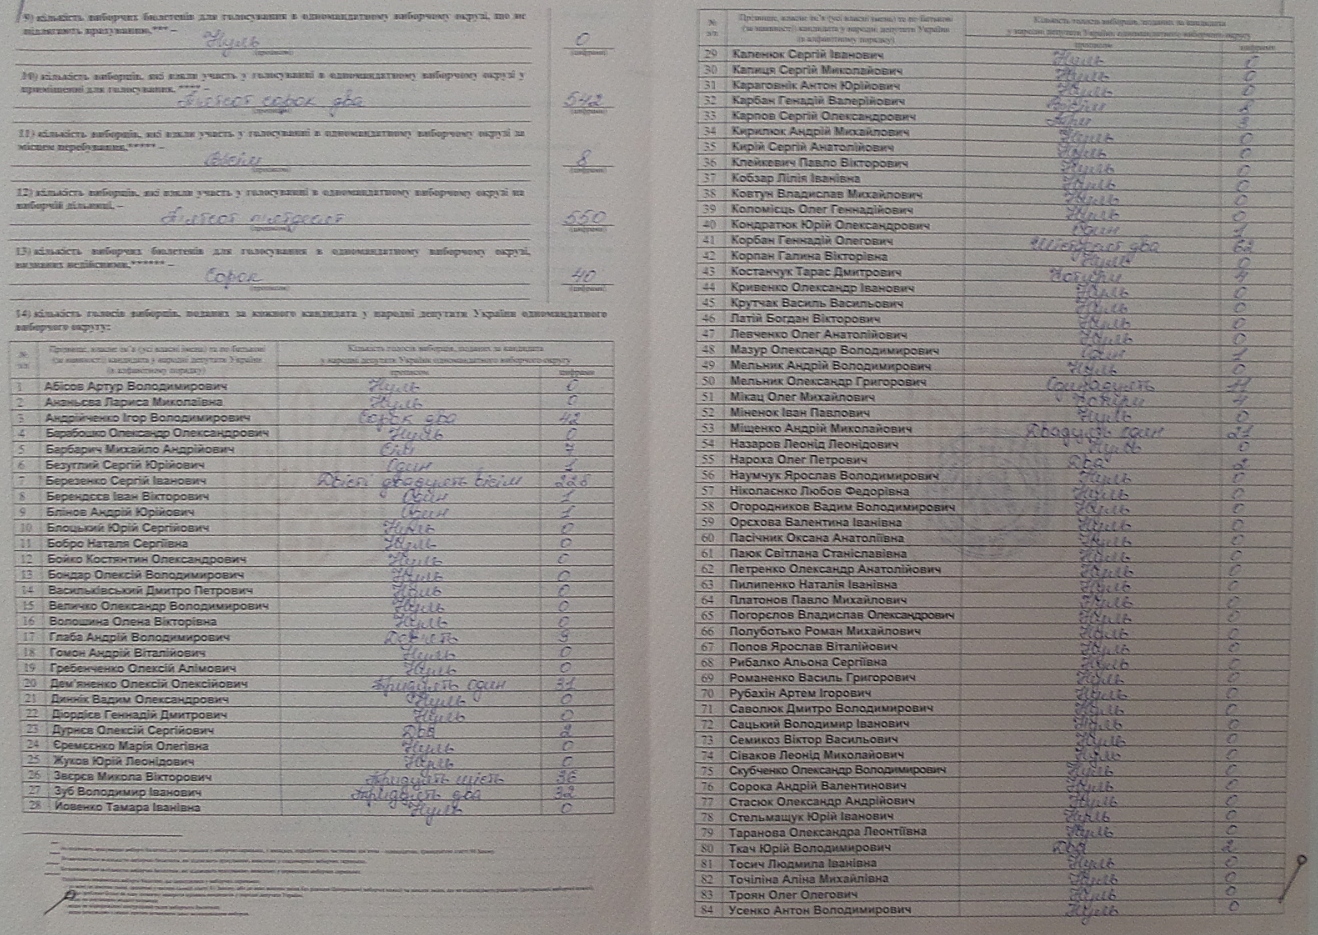 9) кількість виборчих бюлетенів для голосування в одномандатному виборчому окрузі, що не
підлягають врахуванню,*** –
Нуль 0
(прописом) (цифрами)
10) кількість виборців, які взяли участь у голосуванні в одномандатному виборчому окрузі у
приміщенні для голосування, **** –
П'ятсот сорок два 542
(прописом) (цифрами)
11) кількість виборців, які взяли участь у голосуванні в одномандатному виборчому окрузі за
місцем перебування,***** –
Вісім 8
(прописом) (цифрами)
12) кількість виборців, які взяли участь у голосуванні в одномандатному виборчому окрузі на
виборчій дільниці, –
П'ятсот п'ятдесят 550
(прописом) (цифрами)
13) кількість виборчих бюлетенів для голосування в одномандатному виборчому окрузі,
визнаних недійсними,****** –
Сорок 40
(прописом) (цифрами)
14) кількість голосів виборців, поданих за кожного кандидата у народні депутати України одномандатного
виборчого округу:
№ з/п Прізвище, власне ім'я (усі власні імена) та по батькові (за наявності) кандидата у народні депутати України (в алфавітному порядку) Кількість голосів виборців, поданих за кандидата у народні депутати України одномандатного виборчого округу
прописом цифрами
1 Абісов Артур Володимирович Нуль 0
2 Ананьєва Лариса Миколаївна Нуль 0
3 Андрійченко Ігор Володимирович Сорок два 42
4 Барабошко Олександр Олександрович Нуль 0
5 Барбарич Михайло Андрійович Сім 7
6 Безуглий Сергій Юрійович Один 1
7 Березенко Сергій Іванович Двісті двадцять вісім 228
8 Берендєєв Іван Вікторович Один 1
9 Блінов Андрій Юрійович Один 1
10 Блоцький Юрій Сергійович Нуль 0
11 Бобро Наталя Сергіївна Нуль 0
12 Бойко Костянтин Олександрович Нуль 0
13 Бондар Олексій Володимирович Нуль 0
14 Васильківський Дмитро Петрович Нуль 0
15 Величко Олександр Володимирович Нуль 0
16 Волошина Олена Вікторівна Нуль 0
17 Глаба Андрій Володимирович Дев'ять 9
18 Гомон Андрій Віталійович Нуль 0
19 Гребенченко Олексій Алімович Нуль 0
20 Дем'яненко Олексій Олексійович Тридцять один 31
21 Диннік Вадим Олександрович Нуль 0
22 Діордієв Геннадій Дмитрович Нуль 0
23 Дурнєв Олексій Сергійович Два 2
24 Єремєєнко Марія Олегівна Нуль 0
25 Жуков Юрій Леонідович Нуль 0
26 Звєрєв Микола Вікторович Тридцять шість 36
27 Зуб Володимир Іванович Тридцять два 32
28 Йовенко Тамара Іванівна Нуль 0
№ з/п Прізвище, власне ім'я (усі власні імена) та по батькові (за наявності) кандидата у народні депутати України (в алфавітному порядку) Кількість голосів виборців, поданих за кандидата у народні депутати України одномандатного виборчого округу
прописом цифрами
29 Каленюк Сергій Іванович Нуль 0
30 Калиця Сергій Миколайович Нуль 0
31 Караговнік Антон Юрійович Нуль 0
32 Карбан Генадій Валерійович Вісім 8
33 Карпов Сергій Олександрович Три 3
34 Кирилюк Андрій Михайлович Нуль 0
35 Кирій Сергій Анатолійович Нуль 0
36 Клейкевич Павло Вікторович Нуль 0
37 Кобзар Лілія Іванівна Нуль 0
38 Ковтун Владислав Михайлович Нуль 0
39 Коломієць Олег Геннадійович Нуль 0
40 Кондратюк Юрій Олександрович Один 1
41 Корбан Геннадій Олегович Шістдесят два 62
42 Корпан Галина Вікторівна Нуль 0
43 Костанчук Тарас Дмитрович Чотири 4
44 Кривенко Олександр Іванович Нуль 0
45 Крутчак Василь Васильович Нуль 0
46 Латій Богдан Вікторович Нуль 0
47 Левченко Олег Анатолійович Нуль 0
48 Мазур Олександр Володимирович Один 1
49 Мельник Андрій Володимирович Нуль 0
50 Мельник Олександр Григорович Одинадцять 11
51 Мікац Олег Михайлович Чотири 4
52 Міненок Іван Павлович Нуль 0
53 Міщенко Андрій Миколайович Двадцять один 21
54 Назаров Леонід Леонідович Нуль 0
55 Нароха Олег Петрович Два 2
56 Наумчук Ярослав Володимирович Нуль 0
57 Ніколаєнко Любов Федорівна Нуль 0
58 Огородников Вадим Володимирович Нуль 0
59 Орєхова Валентина Іванівна Нуль 0
60 Пасічник Оксана Анатоліївна Нуль 0
61 Паюк Світлана Станіславівна Нуль 0
62 Петренко Олександр Анатолійович Нуль 0
63 Пилипенко Наталія Іванівна Нуль 0
64 Платонов Павло Михайлович Нуль 0
65 Погорєлов Владислав Олександрович Нуль 0
66 Полуботько Роман Михайлович Нуль 0
67 Попов Ярослав Віталійович Нуль 0
68 Рибалко Альона Сергіївна Нуль 0
69 Романенко Василь Григорович Нуль 0
70 Рубахін Артем Ігорович Нуль 0
71 Саволюк Дмитро Володимирович Нуль 0
72 Сацький Володимир Іванович Нуль 0
73 Семикоз Віктор Васильович Нуль 0
74 Сіваков Леонід Миколайович Нуль 0
75 Скубченко Олександр Володимирович Нуль 0
76 Сорока Андрій Валентинович Нуль 0
77 Стасюк Олександр Андрійович Нуль 0
78 Стельмащук Юрій Іванович Нуль 0
79 Таранова Олександра Леонтіївна Нуль 0
80 Ткач Юрій Володимирович Два 2
81 Тосич Людмила Іванівна Нуль 0
82 Точіліна Аліна Михайлівна Нуль 0
83 Троян Олег Олегович Нуль 0
84 Усенко Антон Володимирович Нуль 0